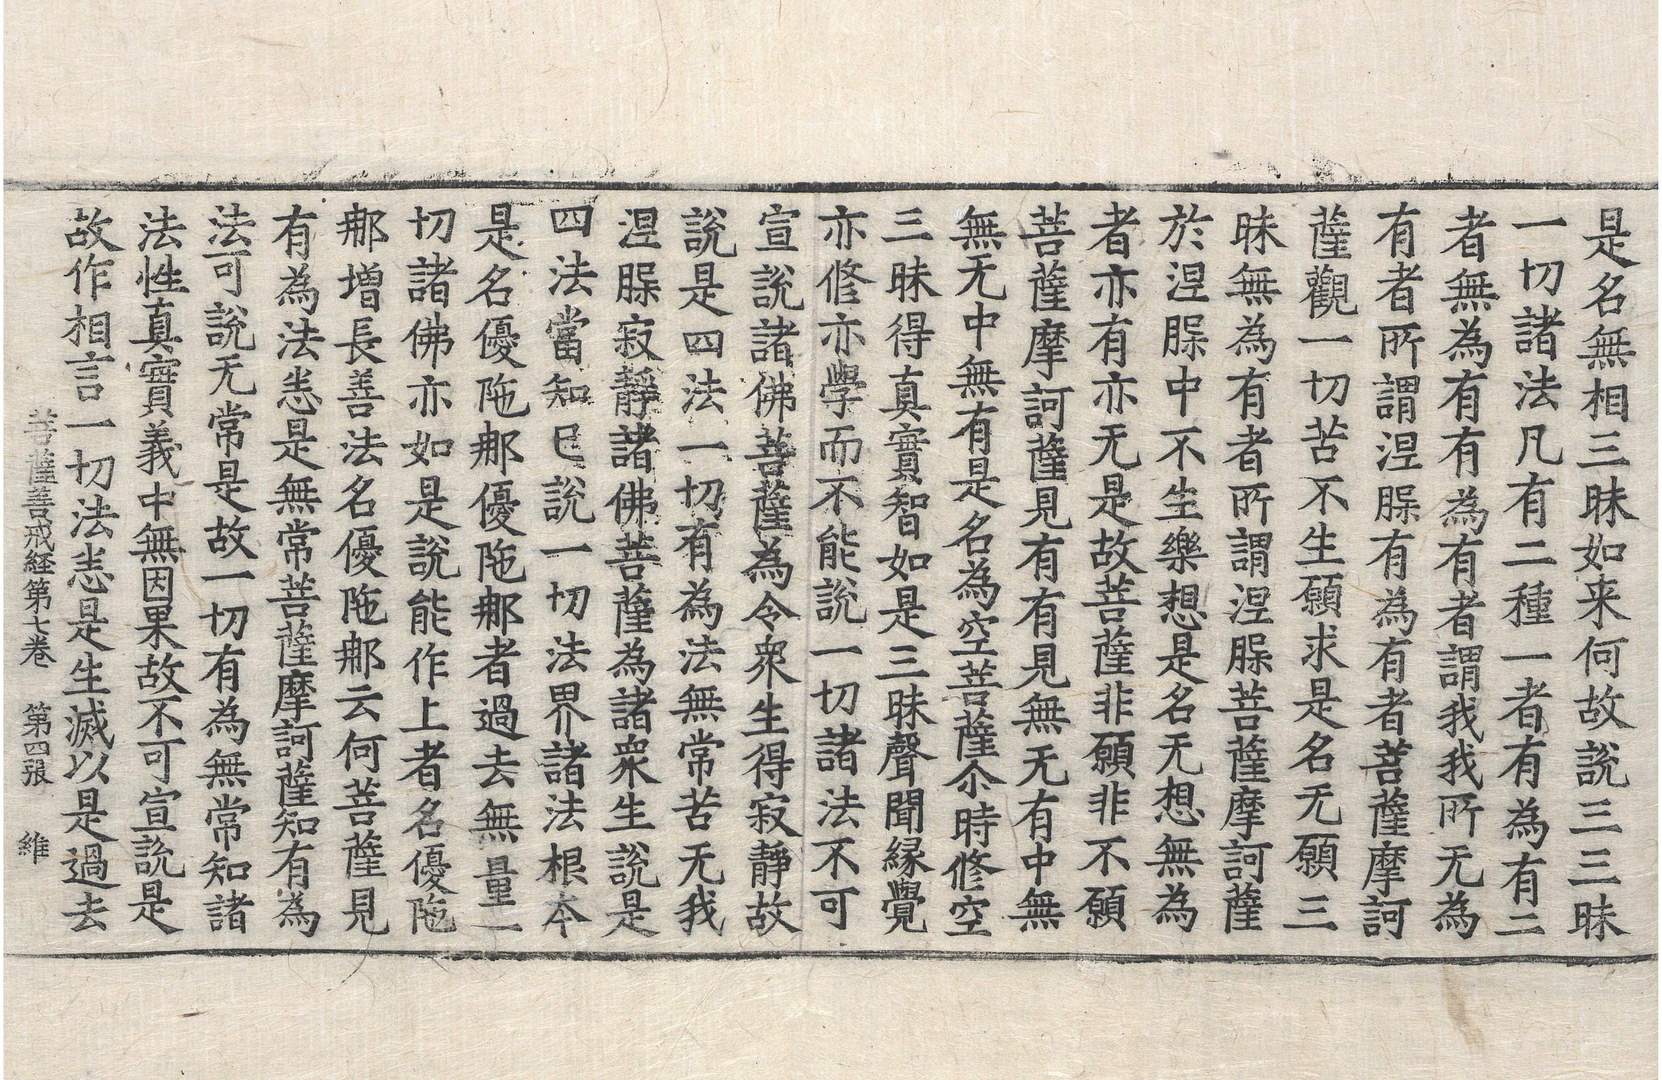 是名無相三昧如来何故說三三昧
一切諸法凡有二種一者有為有二
者無為有有為有者謂我我所无為
有者所謂涅槃有為有者菩薩摩訶
薩觀一切苦不生願求是名无願三
昧無為有者所謂涅槃菩薩摩訶薩
於涅槃中不生樂想是名无想無為
者亦有亦无是故菩薩非願非不願
菩薩摩訶薩見有有見無无有中無
無无中無有是名為空菩薩尒時修空
三昧得真實智如是三昧聲聞緣覺
亦修亦學而不能說一切諸法不可
宣說諸佛菩薩為令衆生得寂靜故
說是四法一切有為法無常苦无我
涅槃寂靜諸佛菩薩為諸衆生說是
四法當知已說一切法界諸法根本
是名優陁那優陁那者過去無量一
切諸佛亦如是說能作上者名優陁
那增長善法名優陁那云何菩薩見
有為法恚是無常菩薩摩訶薩知有為
法可說无常是故一切有為無常知諸
法性真實義中無因果故不可宣說是
故作相言一切法恚是生滅以是過去
菩薩善戒経第七卷　第四張　維